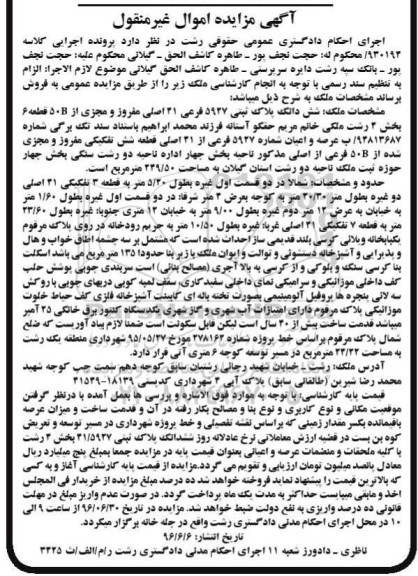 آگهی مزایده اموال غیرمنقول
اجرای احکام دادگستری عمومی حقوقی رشت در نظر دارد پرونده اجرایی کلاسه
۹۳۰۱۹۴/ محکوم له: حجت نجف پور ـ طاهره کاشف الحق ـ گیلانی محکوم علیه: حجت نجف
پور ـ بانک سپه رشت دایره سرپرستی ـ طاهره کاشف الحق گیلانی موضوع لازم الاجرا: الزام
به تنظیم سند رسمی با توجه به انجام کارشناسی ملک زیر را از طریق مزایده عمومی به فروش
برساند مشخصات ملک به شرح ذیل میباشد:
مشخصات ملک: شش دانگ پلاک ثبتی ۵۹۲۷ فرعی ۴۱ اصلی مفروز و مجزی از 50B قطعه۶
بخش ۴ رشت ملکی خانم مریم حقگو آستانه فرزند محمد ابراهیم باستناد سند تک برگی شماره
۹۴۸۱۳۶۸۷/ ب عرصه و اعیان شماره ۵۹۲۷ فرعی از ۴۱ اصلی قطعه شش تفکیکی مفروز و مجزی
شده از 50B فرعی از اصلی مذکور ناحیه بخش چهار اداره ناحیه دو رشت سنگی بخش چهار
حوزه ثبت ملک ناحیه دو رشت استان گیلان به مساحت ۲۴۹/۵۰ مترمربع است.
حدود و مشخصات: شمالا در دو قسمت اول غیره بطول ۵/۴۰ متر به قطعه ۳ تفکیکی ۴۱ اصلی
دو غیره بطول متر ۲۰/۳۰ به کوچه بعرض ۴ متر شرقا: در دو قسمت اول غیره بطول ۱/۶۰ متر
به خیابان به عرض ۱۲ متر دوم غیره بطول ۹/۰۰ متر به خیابان ۱۲ متری جنوبا: غیره بطول ۲۳/۶۰
متر به قطعه ۷ تفکیکی ۴۱ اصلی غربا: غیره بطول ۱۰/۵۰ متر به حریم رودخانه در روی پلاک مرقوم
یکبابخانه ویلایی کرسی بلند قدیمی ساز احداث شده است که مشتمل بر سه چشمه اطاق خواب و هال
و پذیرایی و آشپزخانه دستشوئی و توالت و ایوان ملک با زیر بنا حدودا ۱۳۵ مترمربع می باشد اسکلت
بنا کرسی سنگ و بلوکی و از کرسی به بالا آجری (مصالح بنائی) است سربندی چوبی پوشش حلب
کف داخلی موزائیکی و سرامیکی نمای داخلی سفیدکاری، سقف لمبه کوبی دربهای چوبی با روکش
سه لائی پنجره ها پروفیل آلومینیمی بصورت تخته پاله ای کابینت آشپزخانه فلزی کف حیاط خلوت
موزائیکی پلاک مرقوم دارای امتیازات آب شهری و گاز شهری یکدستگاه کنتور برق خانگی ۲۵ آمپر
میباشد قدمت ساخت پیش از ۴۰ سال است لیکن قابل سکونت است ضمنا لازم بیاد آوریست که ضلع
شمال پلاک مرقوم براساس خط پروژه شماره ۲۷۸۱۶۲ مورخ ۹۵/۰۵/۲۷ شهرداری منطقه یک رشت
به مساحت ۲۴/۲۲ مترمربع در مسیر توسعه کوچه ۶ متری آتی قرار دارد.
آدرس ملک: رشت ـ خیابان شهید رجائی رشتیان سابق کوچه دهم سمت چپ کوچه شهید
محمد رضا شیرین (طالقانی سابق) پلاک آبی ۲ شهرداری کدپستی ۱۸۱۳۹-۴۱۵۴۹
قیمت پایه کارشناسی: با توجه به موارد فوق الاشاره و بررسی ها بعمل آمده با درنظر گرفتن
موقعیت مکانی و نوع کاربری و نوع بنا و مصالح بکار رفته در آن و قدمت ساخت و میزان عرصه
باقیمانده یکسر مقدار زمینی که براساس نقشه تفصیلی و خط پروژه شهرداری در مسیر توسعه و تعریض
کوه پن پست در قضیه ارزش معاملاتی نرخ عادلانه روز ششدانگ پلاک ثبتی ۴۱/۵۹۲۷ بخش ۴ رشت
با کلیه ملحقات و منضمات عرصه و اعیانی بعنوان قیمت پایه در مزایده جمعا بمبلغ پنج میلیارد ریال
معادل پانصد میلیون تومان ارزیابی و تقویم می گردد.مزایده از قیمت پایه کارشناسی آغاز و به کسی
که بالاترین قیمت را پیشنهاد نماید فروخته خواهد شد ده درصد مبلغ مزایده از خریدار فی المجلس
اخذ و مابقی میبایست حداکثر به مدت یک ماه پرداخت گردد. در صورت عدم واریز مبلغ در مهلت
قانونی ده درصد واریزی به نفع دولت ضبط خواهد شد. مزایده در تاریخ ۹۶/۰۶/۳۰ از ساعت ۹ الی
۱۰ در محل اجرای احکام مدنی دادگستری رشت واقع در چله خانه برگزار میگردد.
تاریخ انتشار: ۹۶/۶/۶
ناظری ـ دادورز شعبه ۱۱ اجرای احکام مدنی دادگستری رشت ر/م/الف/ت ۳۴۲۵